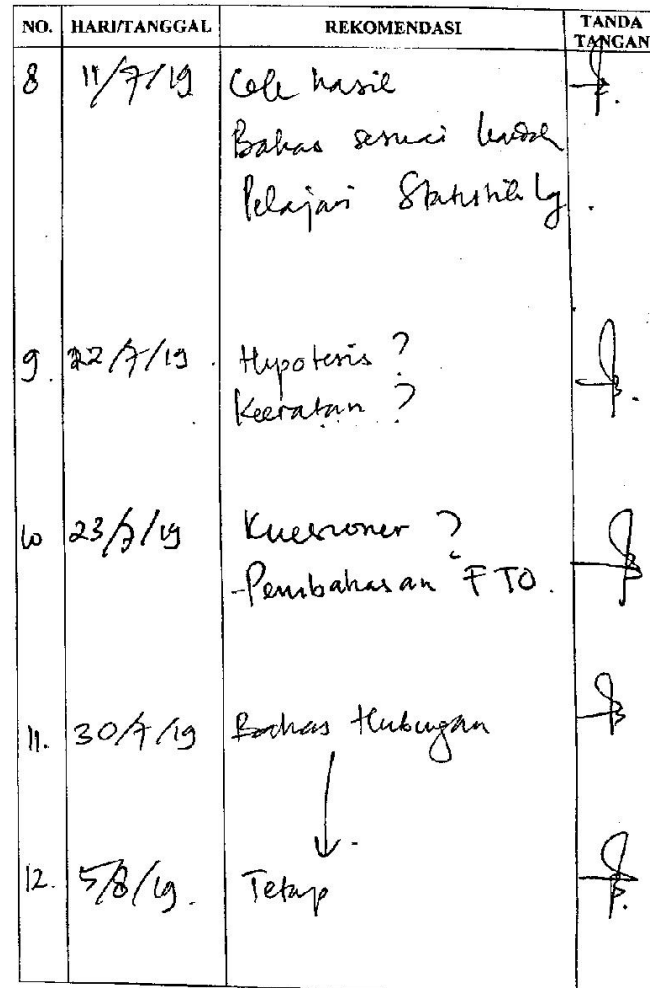 NO. HARI/TANGGAL REKOMENDASI TANDA TANGAN
8 11/7/19 Cek hasil
Bahas sesuai
Pelajari Statistik lg.
9. 22/7/19. Hypotesis?
Keeratan?
10 23/7/19 Kuesioner?
-Pembahasan FTO.
11. 30/7/19 Bahas Hubungan
12. 5/8/19. Tetap